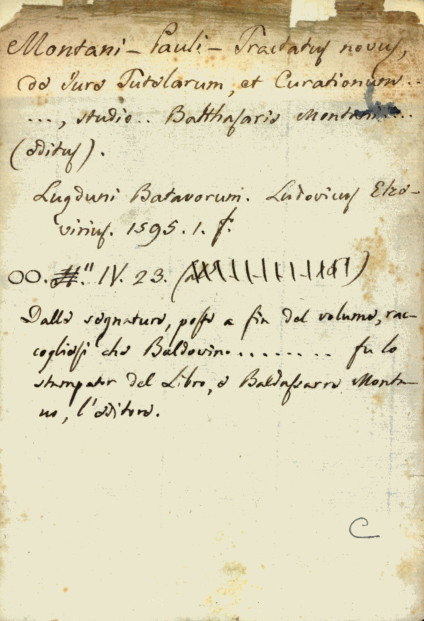 Montani - Pauli - Tractatus novus,
de Jure Tutelarum, et Curationum...
..., studio.. Balthasaris Montani....
(editus).
Lugduni Batavorum. Ludovicus Elze-
virius. 1595. 1. f.
OO. IV. 23.
Dalle segnature, poste a fin del volume, rac-
cogliesi che Baldovino ........ fu lo
stampator del Libro, e Baldassarre Monta-
no, l'editore.
C